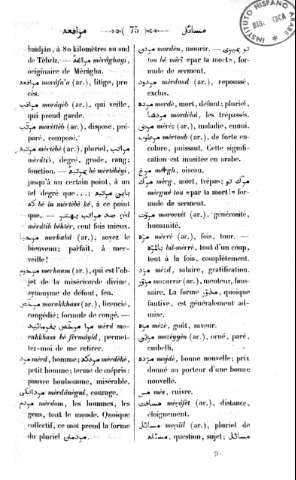 مرافعه
75
مسائل
INSTITUTO HISPANO ARABE
baïdjân, à 80 kilomètres au sud
de Tébriz. — مراغه‌ئی mérâghéyi,
originaire de Mérâgha.
مرافعه morâfa'a (ar.), litige, pro-
cès.
مراقب moraqib (ar.), qui veille,
qui prend garde.
مرتب morattèb (ar.), disposé, pré-
paré, composé.
مرتبه mèrtébè (ar.), pluriel, مراتب
mérâtib, degré, grade, rang;
fonction. —
jusqu'à un certain point, à un
tel degré que... ;
kè in mértébé kè, à ce point
que. — صد مراتب بهتر çèd
mèrâtib bèhtèr, cent fois mieux.
مرحبا merhaba (ar.), soyez le
bienvenu; parfait, à mer-
veille!
مرحوم merhoum (ar.), qui est l'ob-
jet de la miséricorde divine,
synonyme de défunt, feu.
مرخص morakhkhass (ar.), licencié,
congédié; formule de congé. —
مرا مرخص بفرمائید mèrâ mo-
rakhkhass bè fèrmâyid, permet-
tez-moi de me retirer.
مرد mèrd, homme; مردکه mèrdèkè,
petit homme; terme de mépris;
pauvre bonhomme, misérable.
مردانگی mèrdânigui, courage.
مردم mèrdom, les hommes, les
gens, tout le monde. Quoique
collectif, ce mot prend la forme
du pluriel مردمان.
مردن mordèn, mourir. —
too bè mirî «par ta mort», for-
mule de serment.
مردود mèrdoud (ar.), repoussé,
exclus.
مرده mordè, mort, défunt; pluriel,
mordèhâ, les trépassés.
مرض mérèz (ar.), maladie, ennui.
مرطوب mèrtoub (ar.), de forte en-
colure, puissant. Cette signifi-
cation est inusitée en arabe.
مرغ morgh, oiseau.
مرگ mèrg, mort, trépas; مرگ تو
mèrgué too «par ta mort!» for-
mule de serment.
مروت morouèt (ar.), générosité,
humanité.
مره mèrrè (ar.), fois, tour. —
بالمره bil-mèrrè, tout d'un coup,
tout à la fois, complètement.
مزد mozd, salaire, gratification.
مزور mozavvir (ar.), menteur, faus-
saire. La forme, quoique
fautive, est généralement ad-
mise.
مزه mèzè, goût, saveur.
مزین mozèyyèn (ar.), orné, paré,
embelli.
مژده mojdè, bonne nouvelle; prix
donné au porteur d'une bonne
nouvelle.
مس mès, cuivre.
مسافت mèçâfèt (ar.), distance,
éloignement.
مسائل mèçâïl (ar.), pluriel de
مسئله, question, sujet;